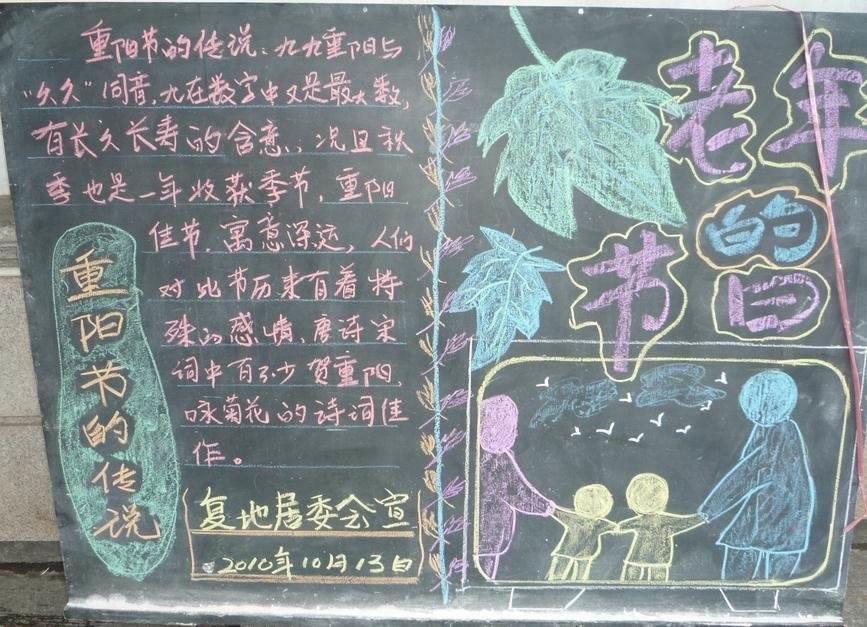 重阳节的传说：九九重阳与
“久久”同音，九在数字中又是最大数，
有长久长寿的含意，况且秋
季也是一年收获季节，重阳
佳节，寓意深远，人们
对此节历来有着特
殊的感情，唐诗宋
词中有不少贺重阳，
咏菊花的诗词佳
作。
重阳节的传说
复地居委会宣
2010年10月13日
老年
的
节日